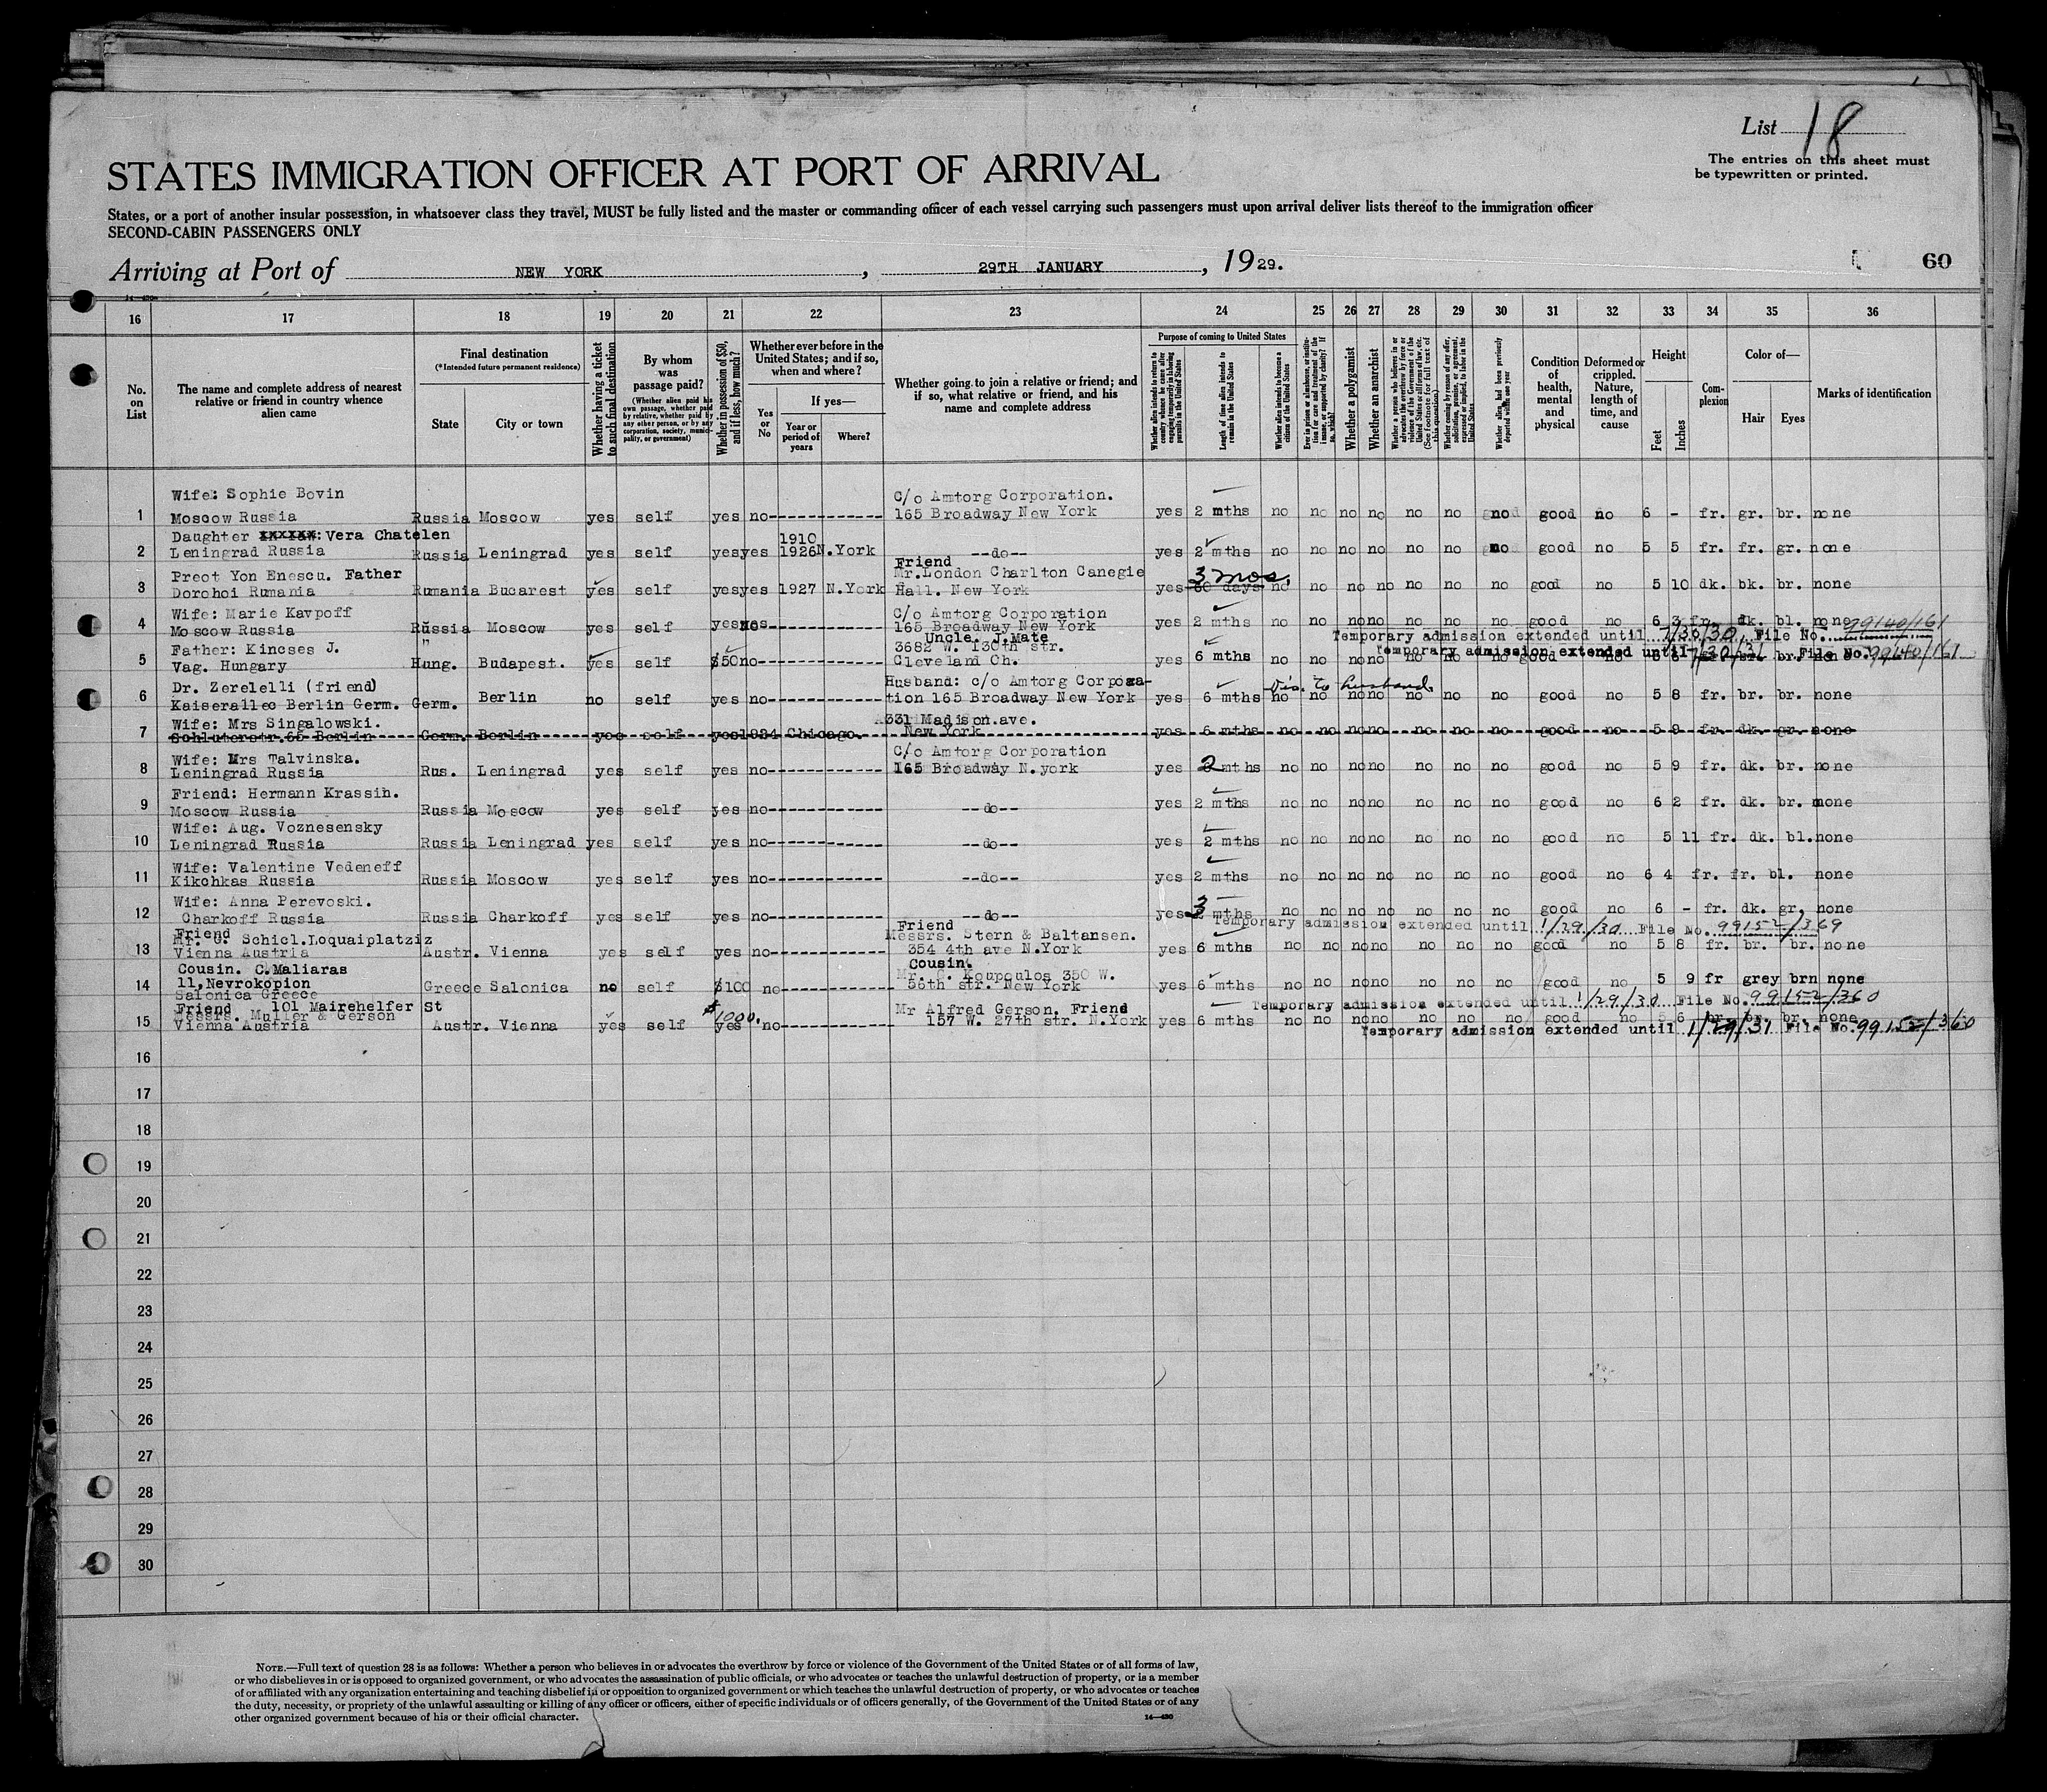 List 18
The entries on this sheet must
be typewritten or printed.
STATES IMMIGRATION OFFICER AT PORT OF ARRIVAL
States, or a port of another insular possession, in whatsoever class they travel, MUST be fully listed and the master or commanding officer of each vessel carrying such passengers must upon arrival deliver lists thereof to the immigration officer
SECOND-CABIN PASSENGERS ONLY
Arriving at Port of NEW YORK, 29TH JANUARY, 1929.
60
16 17 18 19 20 21 22 23 24 25 26 27 28 29 30 31 32 33 34 35 36
No. on List
The name and complete address of nearest relative or friend in country whence alien came
Final destination
(*Intended future permanent residence)
State
City or town
Whether having a ticket to such final destination
By whom was passage paid?
(Whether alien paid his own passage, whether paid by relative, whether paid by any other person, or by any corporation, society, municipality, or government)
Whether in possession of $50, and if less, how much?
Whether ever before in the United States; and if so, when and where?
Yes or No
If yes—
Year or period of years
Where?
Whether going to join a relative or friend; and if so, what relative or friend, and his name and complete address
Purpose of coming to United States
Whether alien intends to return to country whence he came after engaging temporarily in laboring pursuits in the United States
Length of time alien intends to remain in the United States
Whether alien intends to become a citizen of the United States
Whether a polygamist
Whether an anarchist
Condition of health, mental and physical
Deformed or crippled. Nature, length of time, and cause
Height
Feet
Inches
Complexion
Color of—
Hair
Eyes
Marks of identification
Wife: Sophie Bovin C/o Amtorg Corporation.
1 Moscow Russia Russia Moscow yes self yes no 165 Broadway New York yes 2 mths no no no no no no no good no 6 - fr. gr. br. none
Daughter xxxxxx: Vera Chatelen 1910
2 Leningrad Russia Russia Leningrad yes self yes yes 1926 N.York --do-- yes 2 mths no no no no no no no good no 5 5 fr. fr. gr. none
Friend
Preot Yon Enescu. Father Mr. London Charlton Canegie 3 mos.
3 Dorohoi Rumania Rumania Bucarest yes self yes yes 1927 N.York Hall. New York yes 60 days no no no no no no no good no 5 10 dk. bk. br. none
Wife: Marie Kavpoff C/o Amtorg Corporation
4 Moscow Russia Russia Moscow yes self yes 165 Broadway New York yes 2 mths no no no no no no no good no 6 3 fr. dk. bl. none 99140/161
Temporary admission extended until 7/30/30, File No.
Father: Kincses J. Uncle. J. Mate
3682 W. 130th str.
Temporary admission extended until 7/30/31 File No. 99140/161
5 Vag. Hungary Hung. Budapest. yes self $50 no Cleveland Oh. yes 6 mths no no no no no no no good no br. none
Dr. Zerelelli (friend) Husband: c/o Amtorg Corpora- Vis. to husband.
6 Kaiserallee Berlin Germ. Germ. Berlin no self yes no tion 165 Broadway New York yes 6 mths no no no no no no no good no 5 8 fr. br. br. none
Wife: Mrs Singalowski. 331 Madison.ave.
7 Schluterstr.65 Berlin Germ. Berlin yes self yes 1924 Chicago. New York yes 6 mths no no no no no no no good no 5 9 fr. dk. gr. none
Wife: Mrs Talvinska. C/o Amtorg Corporation
8 Leningrad Russia Rus. Leningrad yes self yes no 165 Broadway N.york yes 2 mths no no no no no no no good no 5 9 fr. dk. br. none
Friend: Hermann Krassin.
9 Moscow Russia Russia Moscow yes self yes no --do-- yes 2 mths no no no no no no no good no 6 2 fr. dk. br. none
Wife: Aug. Voznesensky
10 Leningrad Russia Russia Leningrad yes self yes no --do-- yes 2 mths no no no no no no no good no 5 11 fr. dk. bl. none
Wife: Valentine Vedeneff
11 Kikchkas Russia Russia Moscow yes self yes no --do-- yes 2 mths no no no no no no no good no 6 4 fr. fr. bl. none
Wife: Anna Perevoski.
12 Charkoff Russia Russia Charkoff yes self yes no --do-- yes 3 mths no no no no no no no good no 6 - fr. dk. gr. none
Temporary admission extended until 1/29/30 File No. 99152/369
Friend Friend
Mr. G. Schicl.Loquaiplatz12 Messrs. Stern & Baltansen.
13 Vienna Austria Austr. Vienna yes self yes no 354 4th ave N.York yes 6 mths no no no no no no no good no 5 8 fr. br. br. none
Cousin. C.Maliaras Cousin.
11,Nevrokopion Mr. C. Koupoulos 350 W.
14 Salonica Greece Greece Salonica no self $100 no 56th str. New York yes 6 mths no no no no no no no good no 5 9 fr grey brn none
Temporary admission extended until 1/29/30 File No. 99152/360
Friend 101 Mairehelfer St
Messrs. Muller & Gerson $1000. Mr Alfred Gerson. Friend
15 Vienna Austria Austr. Vienna yes self yes no 157 W. 27th str. N.York yes 6 mths no no no no no no no good no 5 6 br. br. br. none
Temporary admission extended until 1/29/31 File No. 99152/360
16
17
18
19
20
21
22
23
24
25
26
27
28
29
30
NOTE.—Full text of question 28 is as follows: Whether a person who believes in or advocates the overthrow by force or violence of the Government of the United States or of all forms of law,
or who disbelieves in or is opposed to organized government, or who advocates the assassination of public officials, or who advocates or teaches the unlawful destruction of property, or is a member
of or affiliated with any organization entertaining and teaching disbelief in or opposition to organized government or which teaches the unlawful destruction of property, or who advocates or teaches
the duty, necessity, or propriety of the unlawful assaulting or killing of any officer or officers, either of specific individuals or of officers generally, of the Government of the United States or of any
other organized government because of his or their official character.
14—430